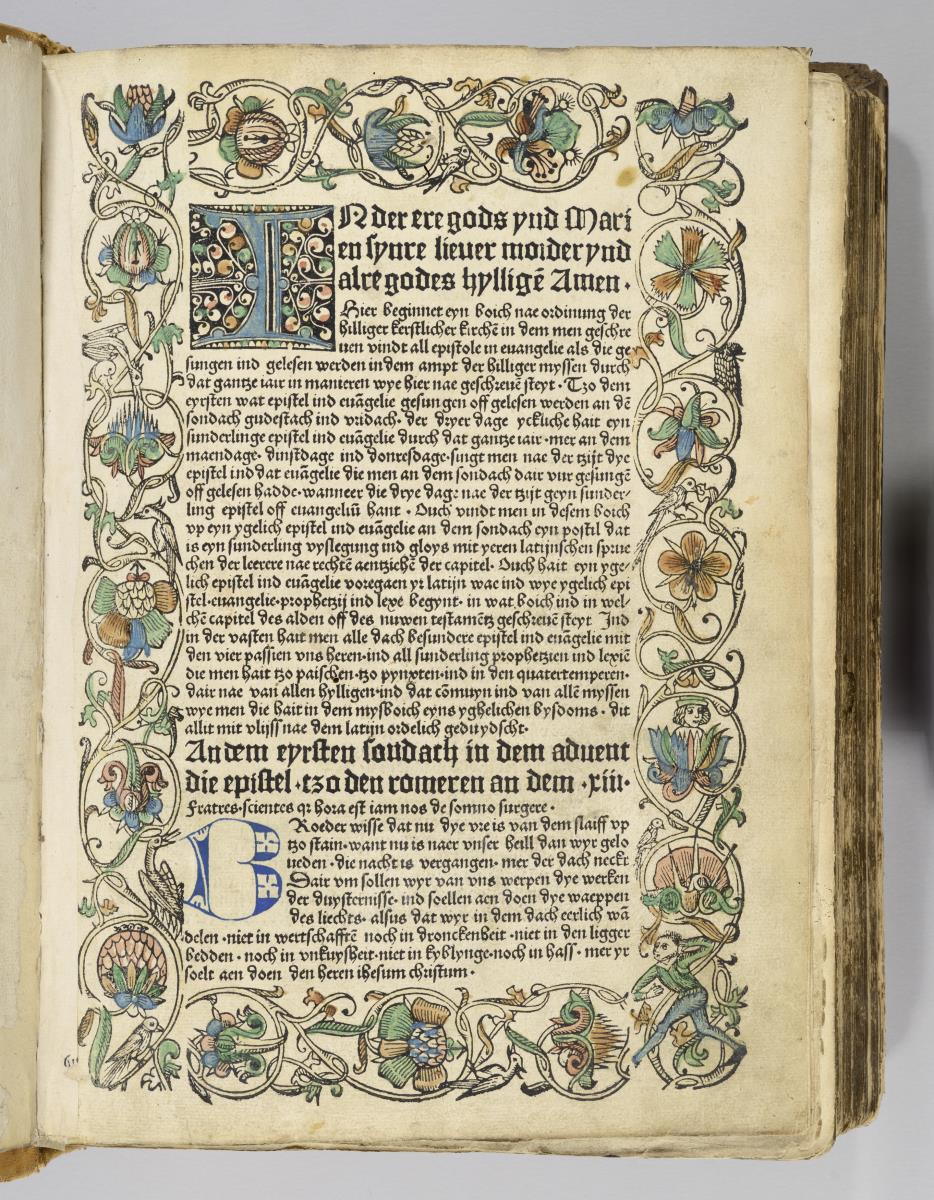 IN der ere gods ynd Mari
en synre lieuer moider ynd
alre godes hylligē Amen ·
Hier beginnet eyn boich nae ordinung der
hilliger kerstlicher kirchē in dem men geschre
uen vindt all epistole in euangelie als die ge
sungen ind gelesen werden in dem ampt der hilliger myssen durch
dat gantze iair in manieren wye hier nae geschreuē steyt · Tzo dem
eyrsten wat epistel ind euāgelie gesungen off gelesen werden an dē
sondach gudestach ind vridach · der dryer dage yckliche hait eyn
sunderlinge epistel ind euāgelie durch dat gantze iair · mer an dem
maendage · dinstdage ind donresdage · singt men nae der tzijt dye
epistel ind dat euāgelie die men an dem sondach dair vur gesungē
off gelesen hadde · wanneer die drye dage nae der tzijt geyn sunder-
ling epistel off euangeliū hant · Ouch vindt men in desem boich
vp eyn ygelich epistel ind euāgelie an dem sondach eyn postil dat
is eyn sunderling vyslegung ind gloys mit yeren latijnschen sprue
chen der leerere nae rechtē aentzichē der capitel · Ouch hait eyn yge-
lich epistel ind euāgelie voregaen yr latijn wae ind wye ygelich epi
stel · euangelie · prophetzij ind lexē begynt · in wat boich ind in wel-
chē capitel des alden off des nuwen testamētz geschreuē steyt Ind
in der vasten hait men alle dach besundere epistel ind euāgelie mit
den vier passien vns heren · ind all sunderling prophetzien ind lexiē
die men hait tzo paischen · tzo pynxten · ind in den quatertemperen ·
dair nae van allen hylligen · ind dat cōmuyn ind van allē myssen
wye men die hait in dem mysboich eyns yghelichen bysdoms · dit
allit mit vlijss nae dem latijn ordelich geduydscht ·
An dem eyrsten sondach in dem aduent
die epistel · tzo den romeren an dem · xiii ·
Fratres · scientes qr hora est iam nos de somno surgere ·
BRoeder wisse dat nu dye vre is van dem slaiff vp
tzo stain · want nu is naer vnser heill dan wyr gelo
ueden · die nacht is vergangen · mer der dach neckt
Dair vm sollen wyr van vns werpen dye werken
der duysternisse · ind soellen aen doen dye waeppen
des liechts · alsus dat wyr in dem dach eerlich wā
delen · niet in wertschafftē noch in dronckenheit · niet in den ligger
bedden · noch in vnkuysheit · niet in kyblynge · noch in hass · mer yr
soelt aen doen den heren ihesum christum ·